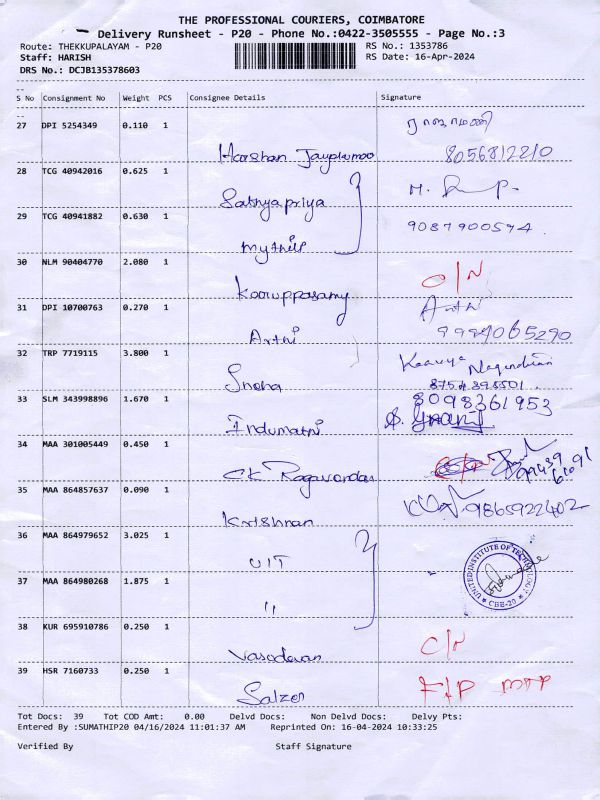 THE PROFESSIONAL COURIERS, COIMBATORE
Delivery Runsheet - P20 - Phone No.:0422-3505555 - Page No.:3
Route: THEKKUPALAYAM - P20 RS No.: 1353786
Staff: HARISH RS Date: 16-Apr-2024
DRS No.: DCJB135378603
S No Consignment No Weight PCS Consignee Details Signature
27 DPI 5254349 0.110 1
8056812210
28 TCG 40942016 0.625 1
Sathyapriya
29 TCG 40941882 0.630 1 9087900574
Mythili
30 NLM 90404770 2.080 1 O/N
Karuppasamy
31 DPI 10700763 0.270 1 Arthi
Arthi 9994065290
32 TRP 7719115 3.800 1 Kaavya
Sneha 8754398501
33 SLM 343998896 1.670 1 8098361953
Indumathi
34 MAA 301005449 0.450 1
CK Ragavendan
35 MAA 864857637 0.090 1 9865922402
Krishnan
36 MAA 864979652 3.025 1
UIT UNITED INSTITUTE OF TECHNOLOGY
37 MAA 864980268 1.875 1
" CBE-20
38 KUR 695910786 0.250 1 C/N
Vasudevan
39 HSR 7160733 0.250 1 F/P MTP
Salzer
Tot Docs: 39 Tot COD Amt: 0.00 Delvd Docs: Non Delvd Docs: Delvy Pts:
Entered By :SUMATHIP20 04/16/2024 11:01:37 AM Reprinted On: 16-04-2024 10:33:25
Verified By Staff Signature